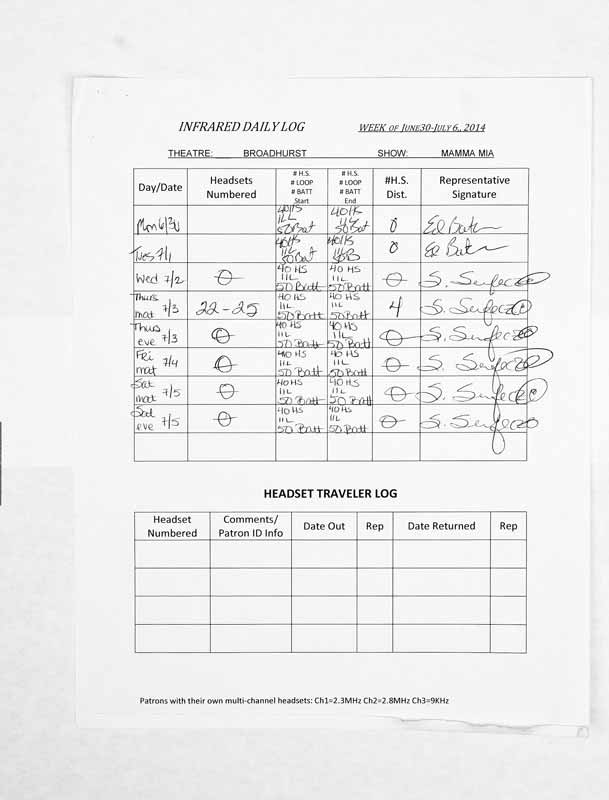 INFRARED DAILY LOG WEEK OF JUNE30-JULY 6, 2014
THEATRE: BROADHURST SHOW: MAMMA MIA
Day/Date Headsets Numbered # H.S. # LOOP # BATT Start # H.S. # LOOP # BATT End #H.S. Dist. Representative Signature
Mon 6/30 40HS 11L 50Bat 40HS 50Bat 0 Ed
Tues 7/1 40HS 11L 50Bat 40HS 50B 0 Ed
Wed 7/2 0 40 HS 11L 50 Batt 40 HS 11L 50 Batt 0 S.
Thurs mat 7/3 22-25 40 HS 11L 50 Batt 40 HS 11L 50 Batt 4 S.
Thus eve 7/3 0 40 HS 11L 50 Batt 40 HS 11L 50 Batt 0 S.
Fri mat 7/4 0 40 HS 11L 50 Batt 40 HS 11L 50 Batt 0 S.
Sat mat 7/5 0 40 HS 11L 50 Batt 40 HS 11L 50 Batt 0 S.
Sat eve 7/5 0 40 HS 11L 50 Batt 40 HS 11L 50 Batt 0 S.
HEADSET TRAVELER LOG
Headset Numbered Comments/ Patron ID Info Date Out Rep Date Returned Rep
Patrons with their own multi-channel headsets: Ch1=2.3MHz Ch2=2.8MHz Ch3=9KHz